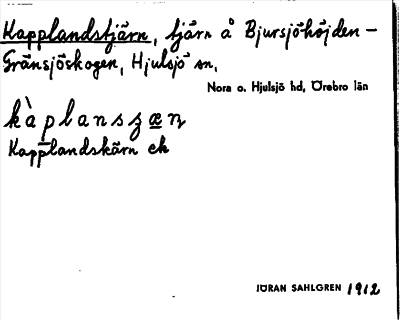 Kapplandstjärn, tjärn å Bjursjöhöjden -
Gränsjöskogen, Hjulsjö sn,
Nora o. Hjulsjö hd, Örebro län
kàplansʒæṇ
Kapplandskärn ek
JÖRAN SAHLGREN 1912